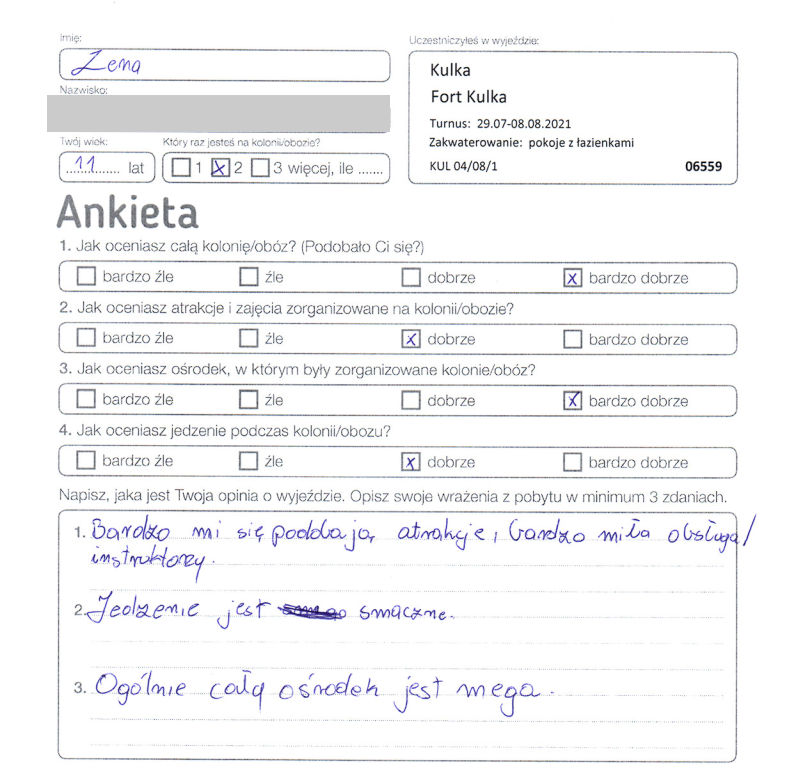 Imię:
Lena
Nazwisko:
Twój wiek:
11 lat
Który raz jesteś na kolonii/obozie?
1 x 2 3 więcej, ile .......
Uczestniczyłeś w wyjeździe:
Kulka
Fort Kulka
Turnus: 29.07-08.08.2021
Zakwaterowanie: pokoje z łazienkami
KUL 04/08/1 06559
Ankieta
1. Jak oceniasz całą kolonię/obóz? (Podobało Ci się?)
bardzo źle źle dobrze x bardzo dobrze
2. Jak oceniasz atrakcje i zajęcia zorganizowane na kolonii/obozie?
bardzo źle źle x dobrze bardzo dobrze
3. Jak oceniasz ośrodek, w którym były zorganizowane kolonie/obóz?
bardzo źle źle dobrze x bardzo dobrze
4. Jak oceniasz jedzenie podczas kolonii/obozu?
bardzo źle źle x dobrze bardzo dobrze
Napisz, jaka jest Twoja opinia o wyjeździe. Opisz swoje wrażenia z pobytu w minimum 3 zdaniach.
1. Bardzo mi się podobają atrakcje, bardzo miła obsługa/
instruktorzy.
2. Jedzenie jest smaczne.
3. Ogólnie cały ośrodek jest mega.